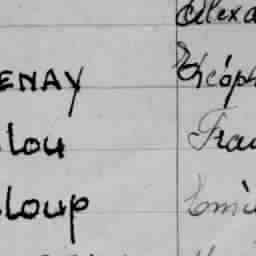 Alexa
ENAY Théoph
lou Fran
loup Emi